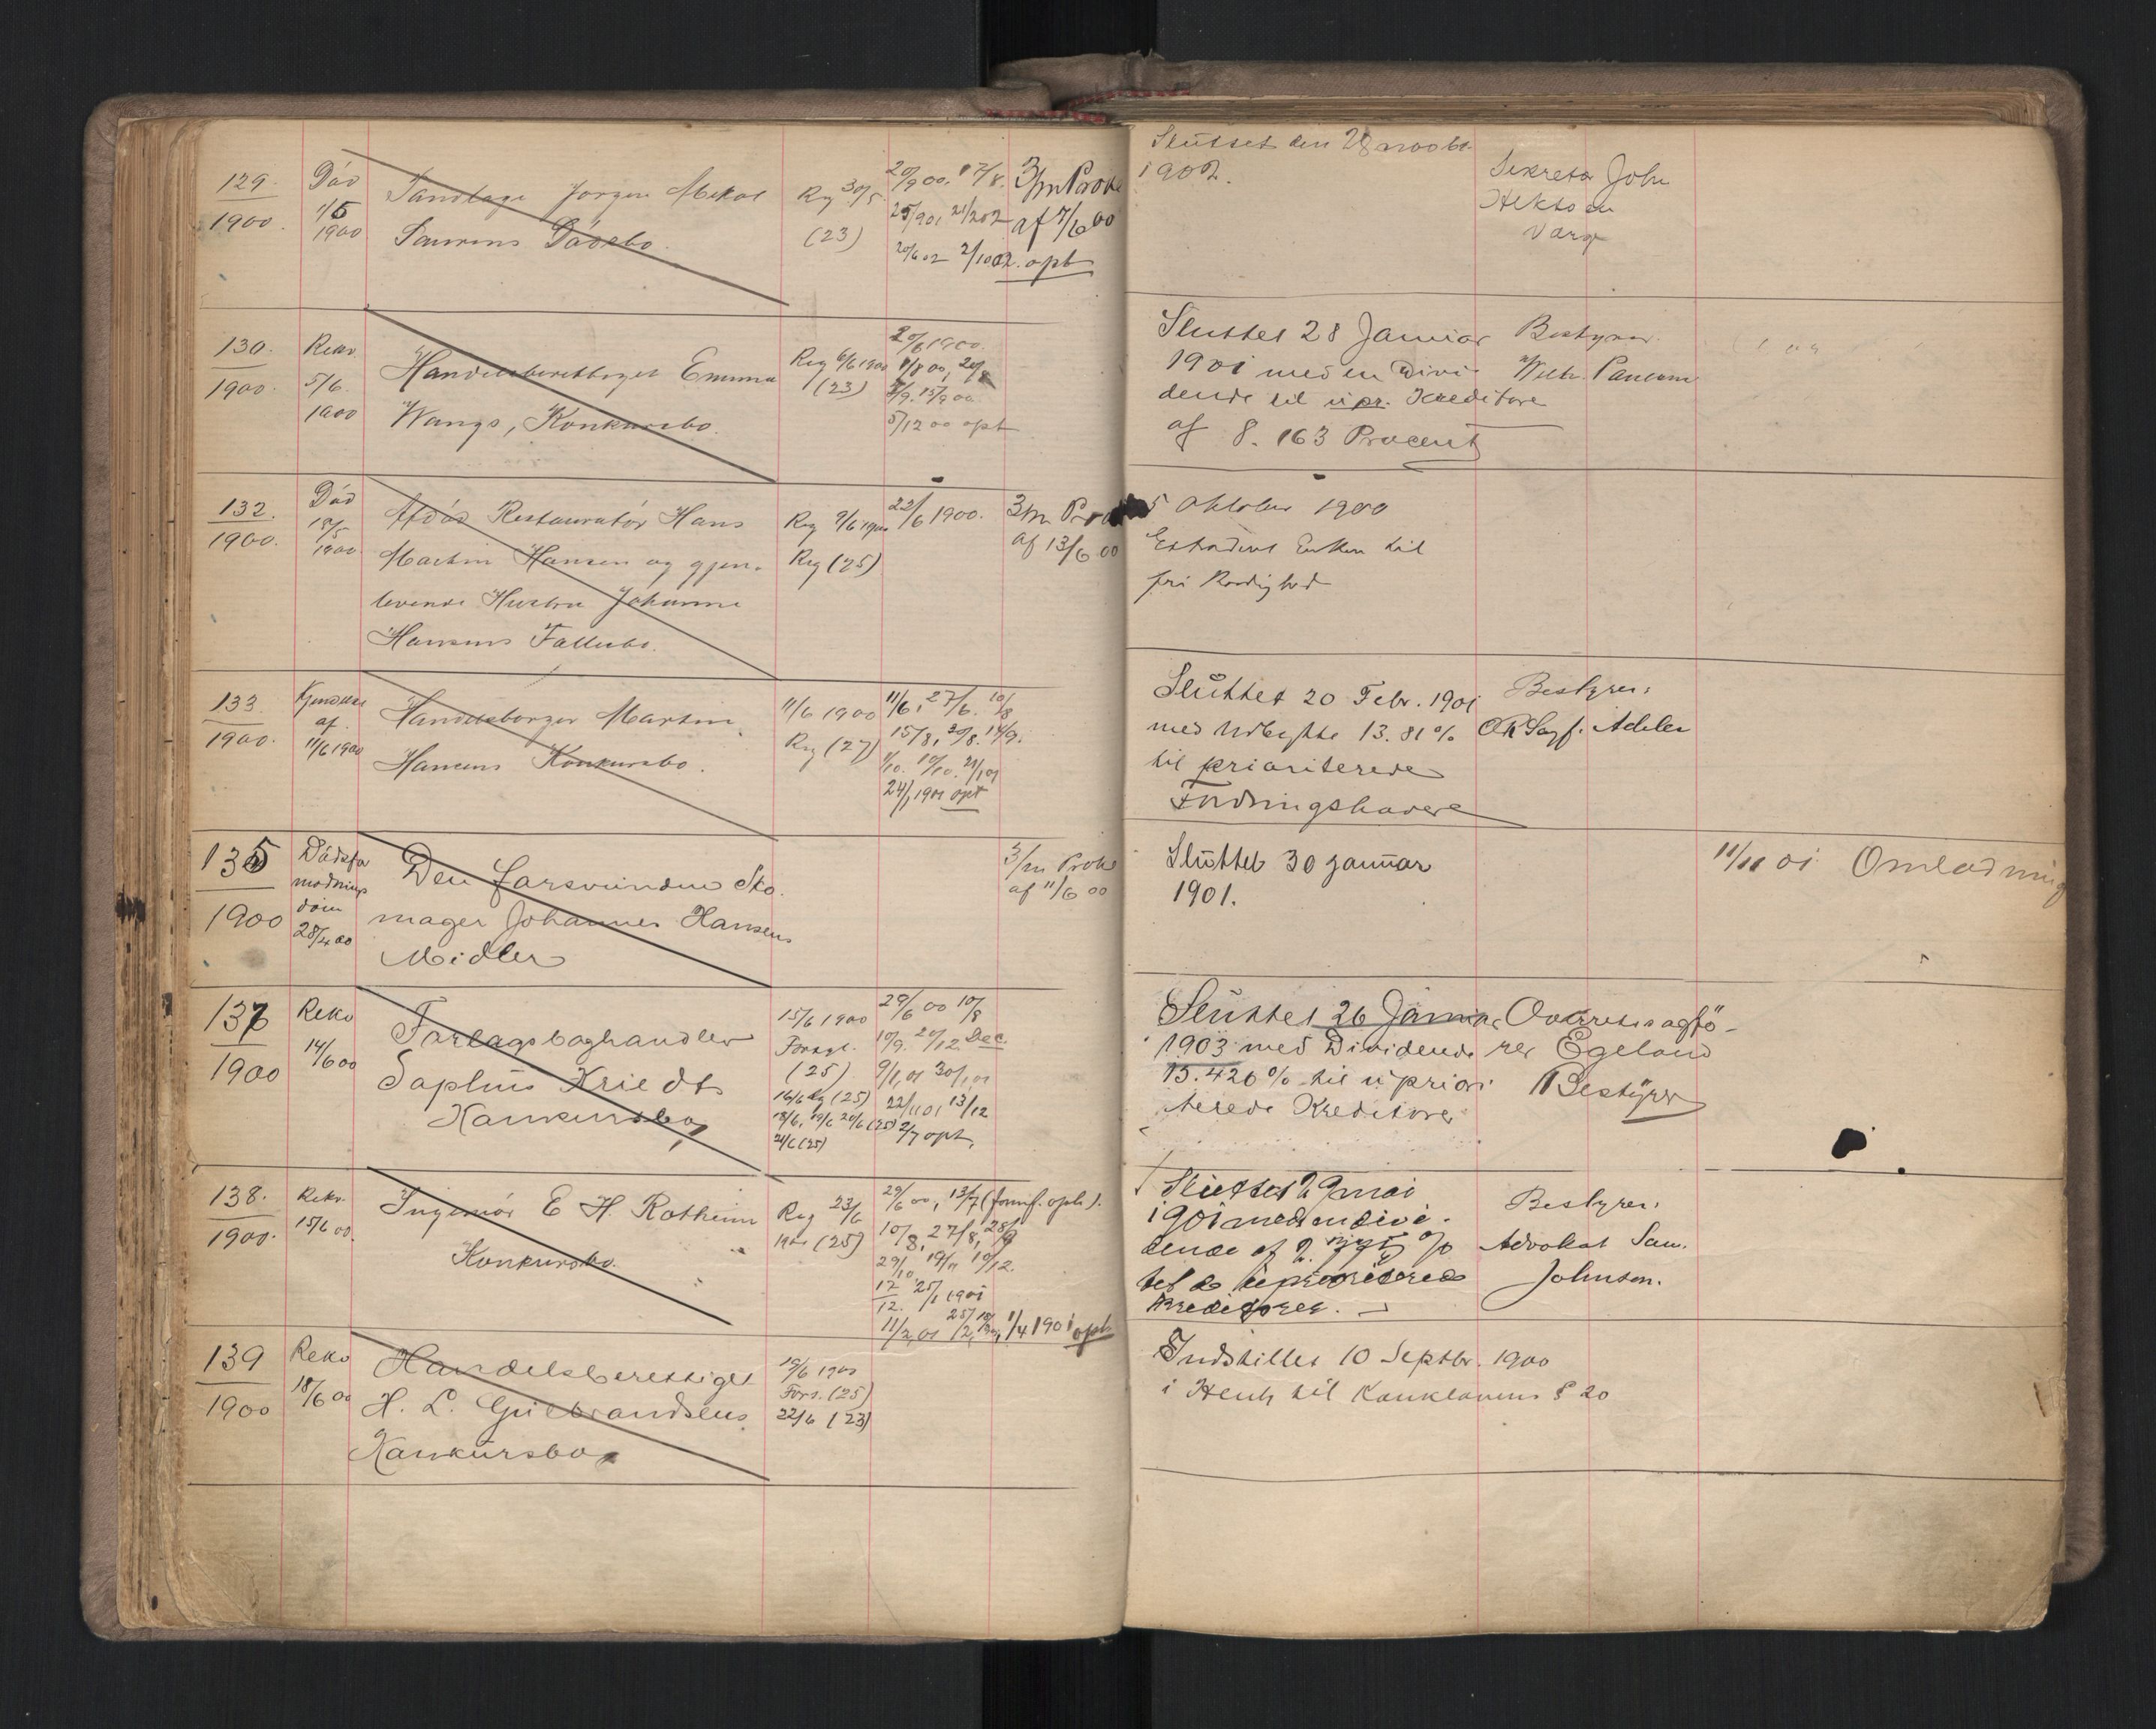 129.
1900.
Död
1/5
1900
Tandlæge Jørgen Mikal
Laurens Dödsbo.
Reg 30/5
(23)
20/9 00. 17/8.
21/2 02
20/6 02 2/10 02. opt
3/m Prokl
af 7/6 00
Sluttet den 28 novbr
1902.
Sekretær John
Værg
130.
1900.
Rekv
5/6.
1900
Handelsberettiget Emma
Wangs, Konkursbo.
Reg 6/6 1900
(23)
20/6 1900.
5/12 00 opt
Sluttet 28 Januar
1901 med en Divi-
dende til upr. Kreditore
af 8.163 Procent
Bestyrer.
132.
1900.
Död
1900
Afdöd Restauratör Hans
Martin Hansen og gjen-
levende Hustru Johanne
Hansens Fallitbo.
Reg 9/6 1900
Reg (25)
22/6 1900.
3/m Pro
af 13/6 00
5 Oktober 1900
Extraderet Enken til
fri Raadighed
133.
1900.
Kjendelse
af
11/6 1900
Handelsborger Martin
Hansens Konkursbo.
11/6 1900
Reg (27)
11/6, 27/6. 10/8
15/8, 30/8. 14/9.
1/10. 10/10. 21/1 01
24/1 1901 opt
Sluttet 20 Febr. 1901
med Udbytte 13.81 %
til prioriterede
Fordringshavere
Bestyrer:
ORSagf. Adeler
135
1900
Dödsfor
modnings
dom
28/4 00
Den forsvundne Sko-
mager Johannes Hansens
Midler
3/m Prokl
af 11/6 00
Sluttet 30 januar
1901.
11/11 01 Omladning
137
1900
Rekv
14/6 00
Forlagsboghandler
Sophus Kriedts
Konkursbo,
15/6 1900
Forsgl.
(25)
16/6 Reg (25)
18/6, 19/6 20/6 (25)
21/6 (25)
29/6 00 10/8
10/9. 20/12 Dec.
9/1 01 30/1 01
22/11 01 13/12
2/7 opt.
Sluttet 26 Januar
1903 med Dividende
15.426 % til upriori
terede Kreditorer
Overretssagfö-
rer Egeland
Bestyrer
138.
1900.
Rekv.
15/6 00.
Ingeniör E H. Rotheim
Konkursbo.
Reg 23/6
1900 (25)
29/6 00, 13/7 (forml. oph).
10/8, 27/8, 28/9
29/10 19/11 10/12.
17/12. 25/1 1901
11/2 01 1/4 1901 oph
Sluttet 29 mai
1901 med en divi-
dende af
til de uprioriterede
kreditorer.
Bestyrer:
Advokat Sam.
Johnson.
139
1900
Rekv
18/6 00
Handelsberettiget
H. L. Gulbrandsens
Konkursbo
19/6 1900
Fors. (25)
22/6 (23)
Indstillet 10 Septbr. 1900
i Henh til Konklovens § 20